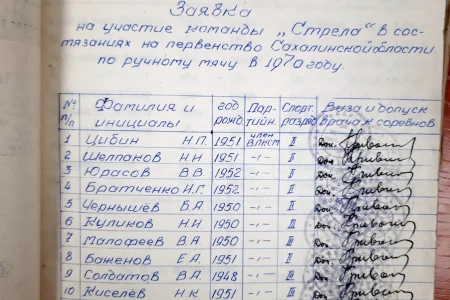 Заявка
на участие команды „Стрела" в сос-
тязаниях на первенство Сахалинской области
по ручному мячу в 1970 году.
№ п/п Фамилия и инициалы год рожд Пар-тийн. Спорт. разряд Виза и допуск врача к соревнов
1 Цибин Н.П. 1951 член ВЛКСМ II Доп.
2 Шелпаков Н.Н 1951 -〃- II Доп.
3 Юрасов В В 1952 -〃- II Доп.
4 Братченко Н.Г. 1952 -〃- II Доп.
5 Чернышёв Б.А. 1950 -〃- II Доп.
6 Куликов Н.И 1950 -〃- Доп.
7 Малофеев В.А. 1950 -〃- Доп.
8 Баженов Е.А. 1951 -〃- Доп.
9 Солдатов В.А. 1948 -〃- Доп.
10 Киселёв Н.К 1951 -〃- Доп.